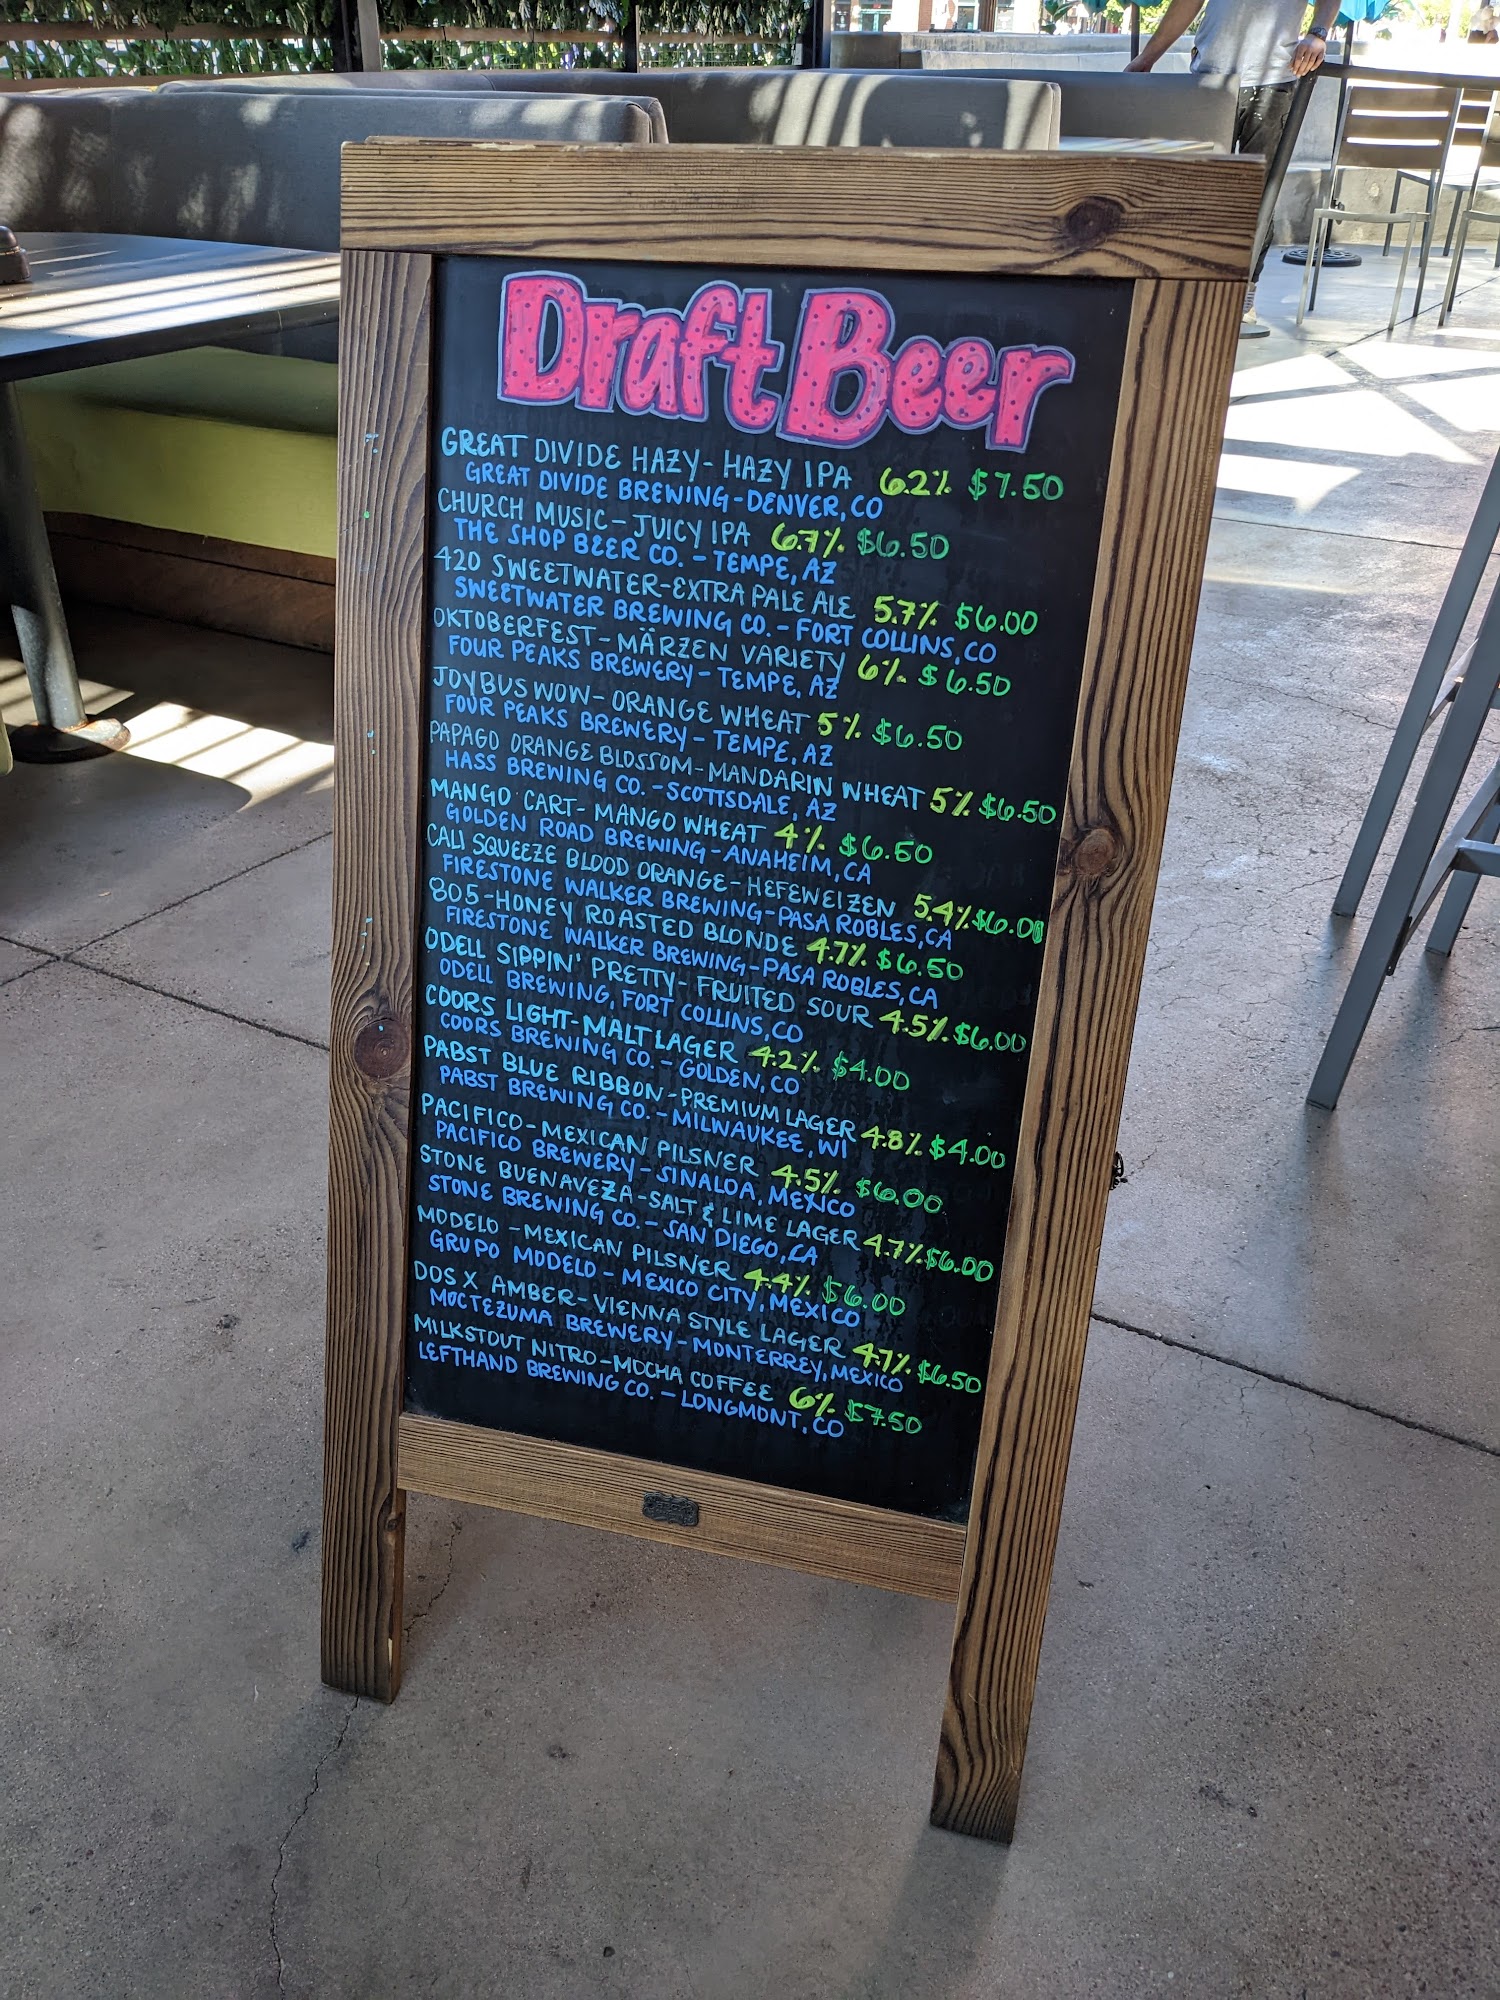 Draft Beer
GREAT DIVIDE HAZY - HAZY IPA 6.2% $7.50
GREAT DIVIDE BREWING - DENVER, CO
CHURCH MUSIC - JUICY IPA 6.7% $6.50
THE SHOP BEER CO. - TEMPE, AZ
420 SWEETWATER - EXTRA PALE ALE 5.7% $6.00
SWEETWATER BREWING CO. - FORT COLLINS, CO
OKTOBERFEST - MÄRZEN VARIETY 6% $6.50
FOUR PEAKS BREWERY - TEMPE, AZ
JOYBUS WOW - ORANGE WHEAT 5% $6.50
FOUR PEAKS BREWERY - TEMPE, AZ
PAPAGO ORANGE BLOSSOM - MANDARIN WHEAT 5% $6.50
HASS BREWING CO. - SCOTTSDALE, AZ
MANGO CART - MANGO WHEAT 4% $6.50
GOLDEN ROAD BREWING - ANAHEIM, CA
CALI SQUEEZE BLOOD ORANGE - HEFEWEIZEN 5.4% $6.00
FIRESTONE WALKER BREWING - PASA ROBLES, CA
805 - HONEY ROASTED BLONDE 4.7% $6.50
FIRESTONE WALKER BREWING - PASA ROBLES, CA
ODELL SIPPIN' PRETTY - FRUITED SOUR 4.5% $6.00
ODELL BREWING, FORT COLLINS, CO
COORS LIGHT - MALT LAGER 4.2% $4.00
COORS BREWING CO. - GOLDEN, CO
PABST BLUE RIBBON - PREMIUM LAGER 4.8% $4.00
PABST BREWING CO. - MILWAUKEE, WI
PACIFICO - MEXICAN PILSNER 4.5% $6.00
PACIFICO BREWERY - SINALOA, MEXICO
STONE BUENAVEZA - SALT & LIME LAGER 4.7% $6.00
STONE BREWING CO. - SAN DIEGO, CA
MODELO - MEXICAN PILSNER 4.4% $6.00
GRUPO MODELO - MEXICO CITY, MEXICO
DOS X AMBER - VIENNA STYLE LAGER 4.7% $6.50
MOCTEZUMA BREWERY - MONTERREY, MEXICO
MILKSTOUT NITRO - MOCHA COFFEE 6% $7.50
LEFTHAND BREWING CO. - LONGMONT, CO